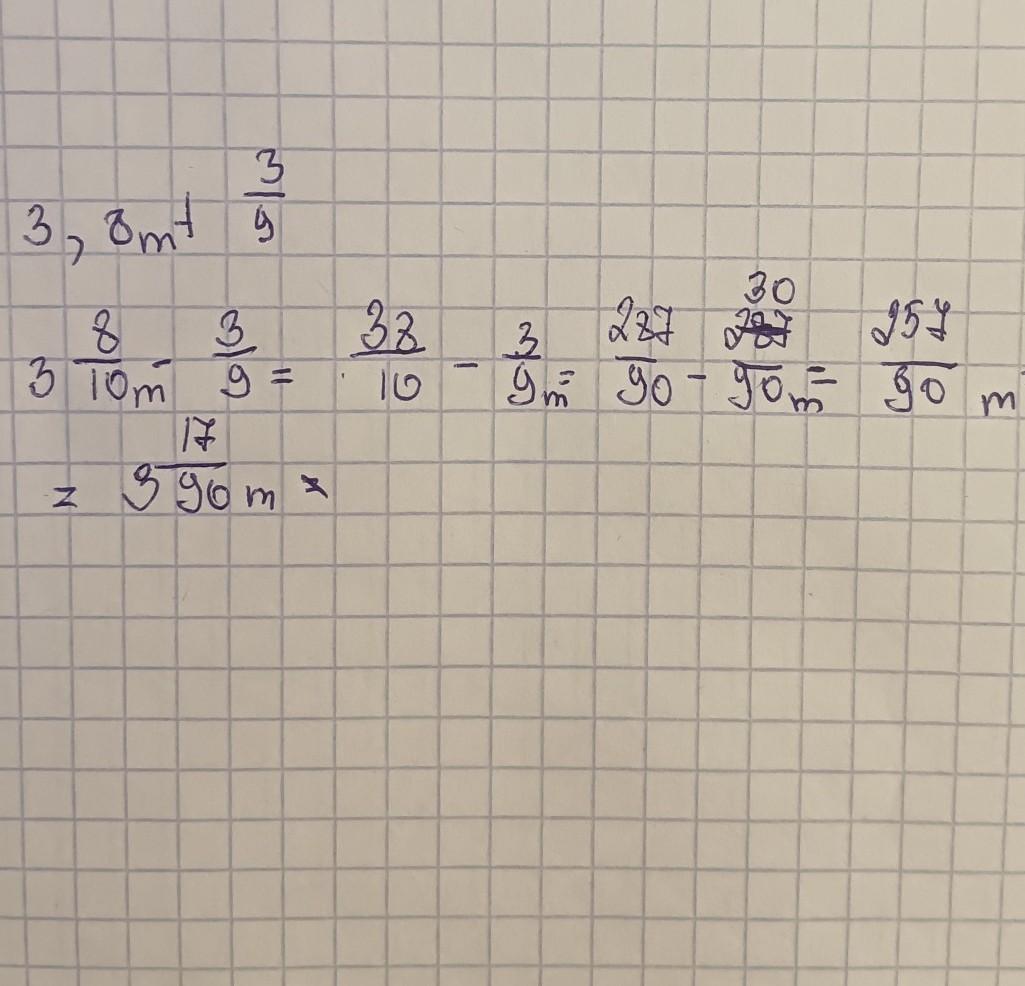 3,8m + 3/9
3 8/10 m - 3/9 = 38/10 - 3/9 m = 287/90 - 30/90 m = 257/90 m
= 3 17/90 m =